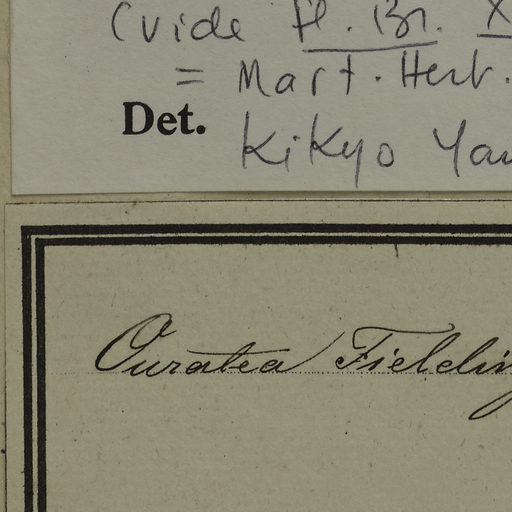 (vide Fl. Br. X
= Mart. Herb.
Det. Kikyo Yam
Ouratea Fieldin